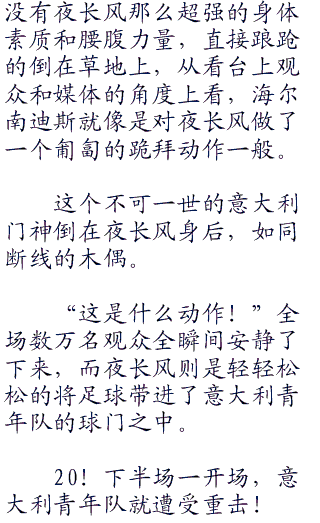 没有夜长风那么超强的身体
素质和腰腹力量，直接踉跄
的倒在草地上，从看台上观
众和媒体的角度上看，海尔
南迪斯就像是对夜长风做了
一个匍匐的跪拜动作一般。
这个不可一世的意大利
门神倒在夜长风身后，如同
断线的木偶。
“这是什么动作！”全
场数万名观众全瞬间安静了
下来，而夜长风则是轻轻松
松的将足球带进了意大利青
年队的球门之中。
20！下半场一开场，意
大利青年队就遭受重击！